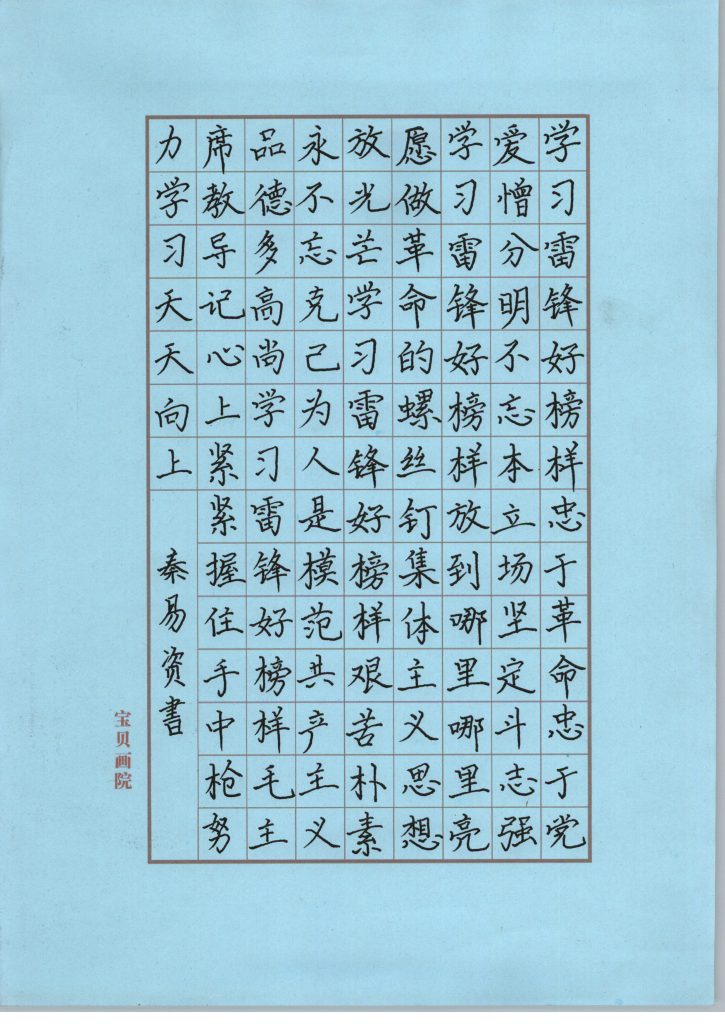 学习雷锋好榜样忠于革命忠于党
爱憎分明不忘本立场坚定斗志强
学习雷锋好榜样放到哪里哪里亮
愿做革命的螺丝钉集体主义思想
放光芒学习雷锋好榜样艰苦朴素
永不忘克己为人是模范共产主义
品德多高尚学习雷锋好榜样毛主
席教导记心上紧紧握住手中枪努
力学习天天向上
秦易资書
宝贝画院